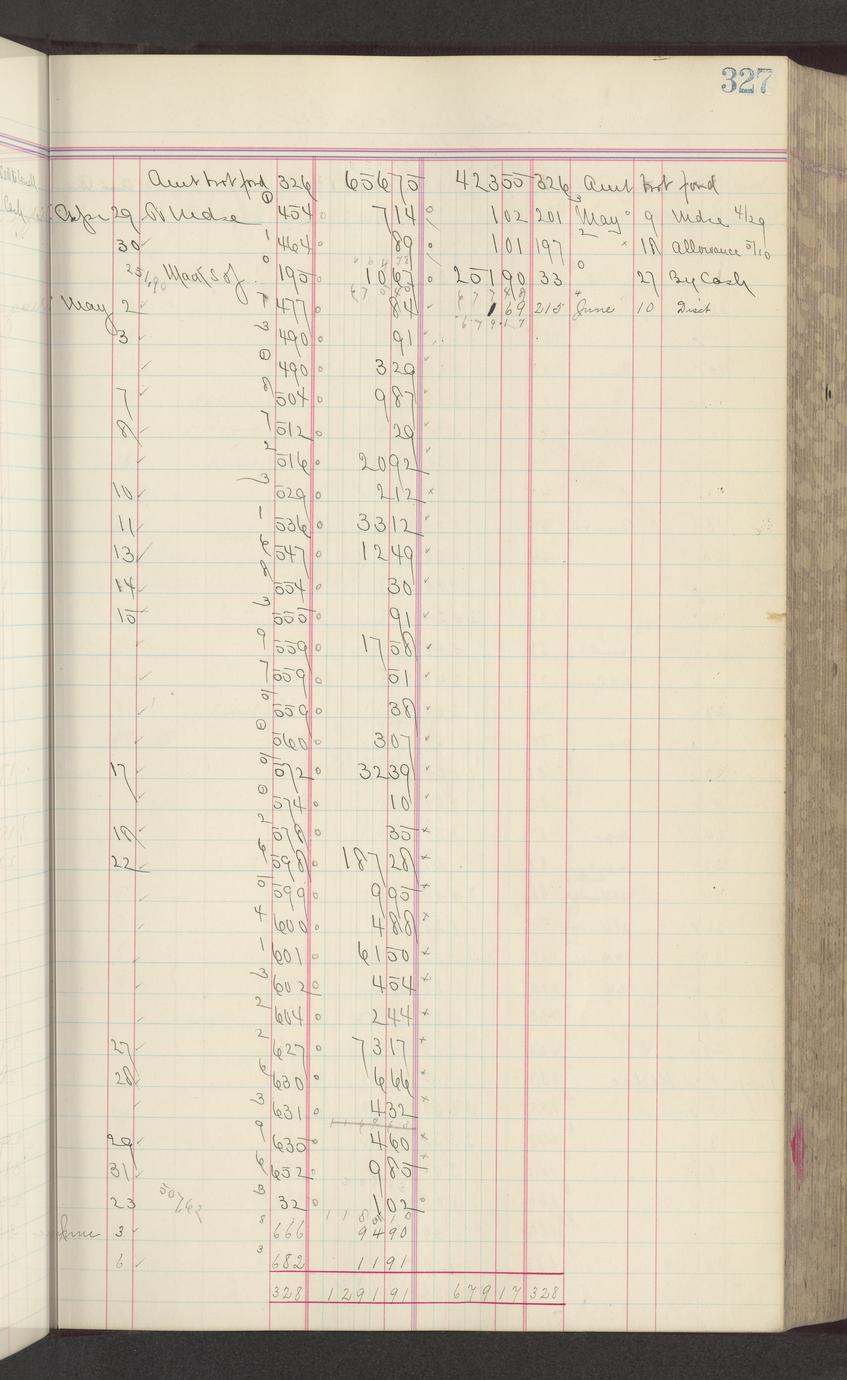 327
Amt brot ford 326 656 75 423 55 326 Amt brot ford
Apr 29 To Mdse 454 7 14 1 02 201 May 9 Mdse 4/29
30 464 89 1 01 197 18 Allowance 5/10
251.90 195 10 67 251 90 33 27 By Cash
May 2 477 84 1 69 215 June 10 Disct
3 490 91
490 3 29
7 504 9 87
8 512 29
516 20 92
10 529 2 12
11 536 33 12
13 547 12 49
14 554 30
15 555 91
559 17 58
559 51
559 38
560 3 07
17 572 32 39
574 10
18 578 35
22 598 187 28
599 9 95
600 4 88
601 61 50
602 4 54
604 2 44
27 627 73 17
28 630 6 66
631 4 32
29 635 4 60
31 652 9 85
23 507.62 32 1 02
June 3 666 94 90
6 682 11 91
328 1291 91 679 17 328